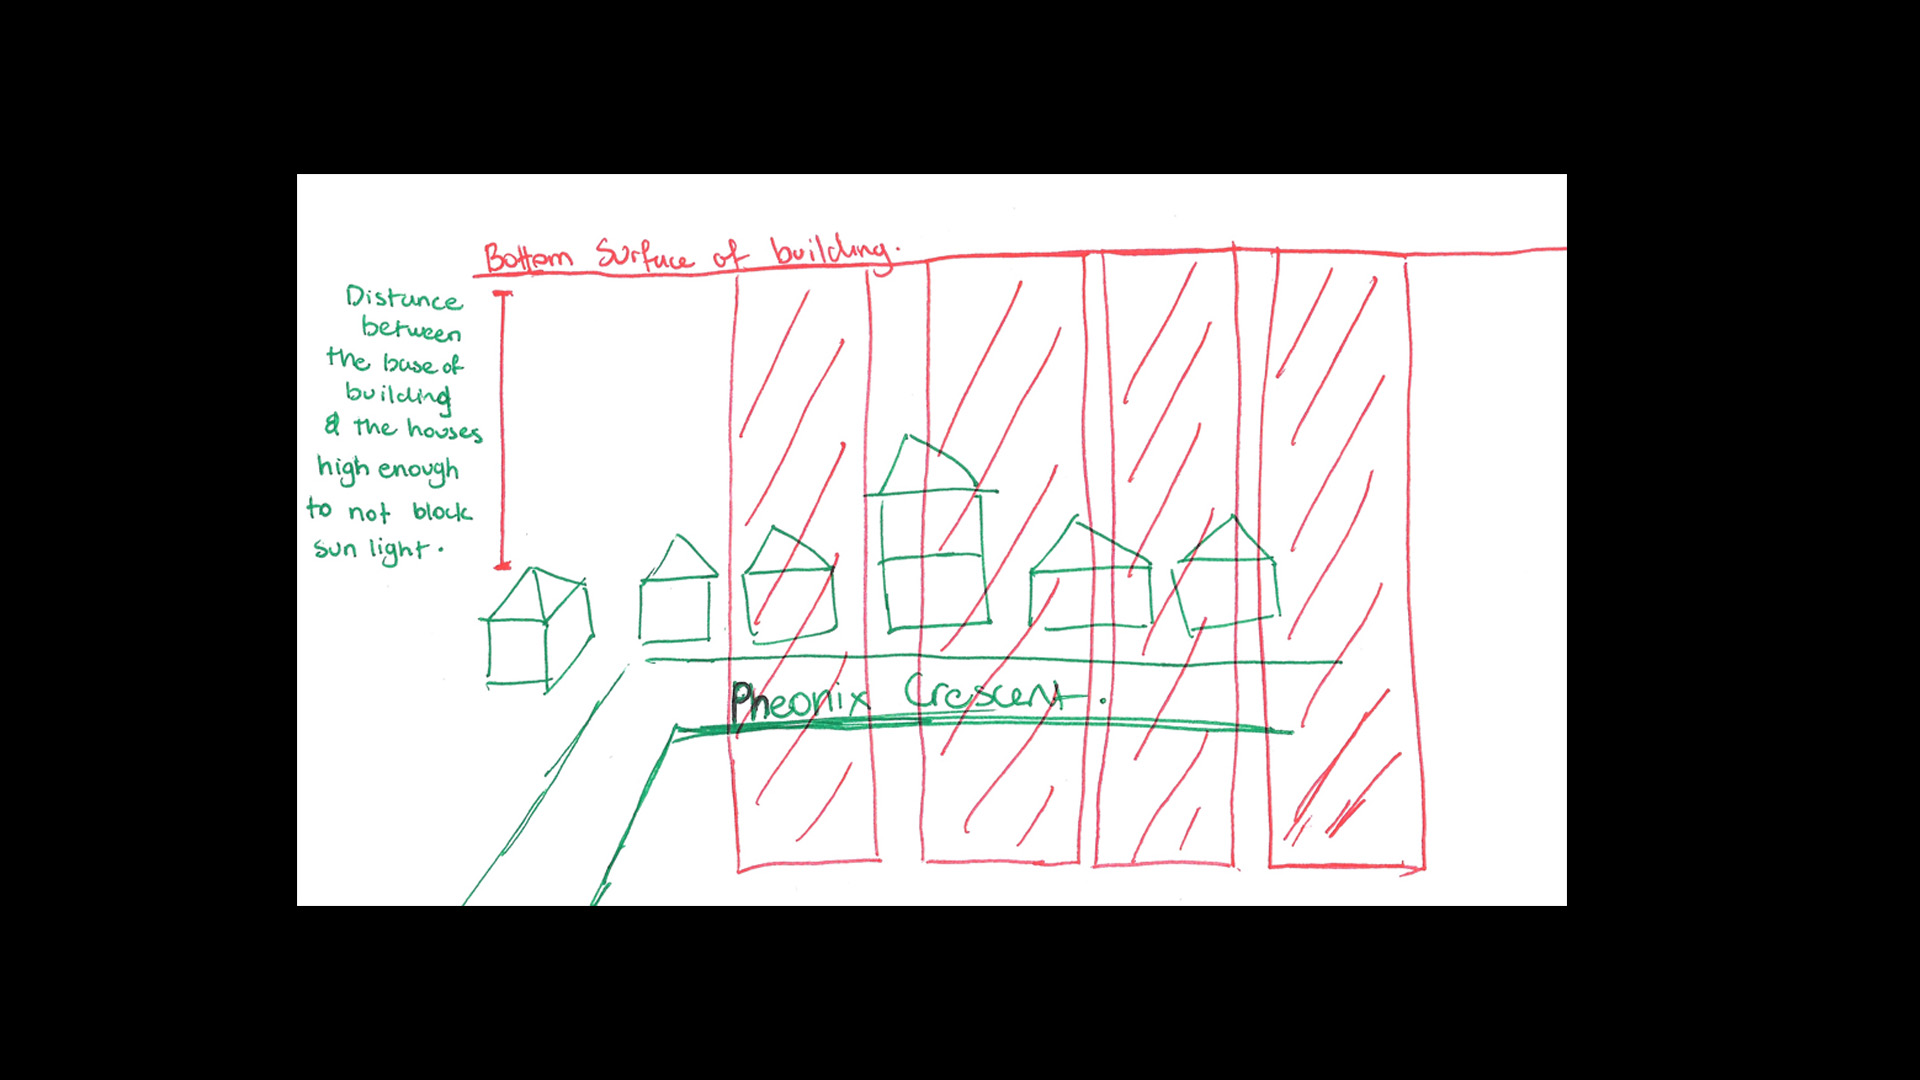 Bottom Surface of building.
Distance
between
the base of
building
& the houses
high enough
to not block
sun light.
Pheonix Crescent.